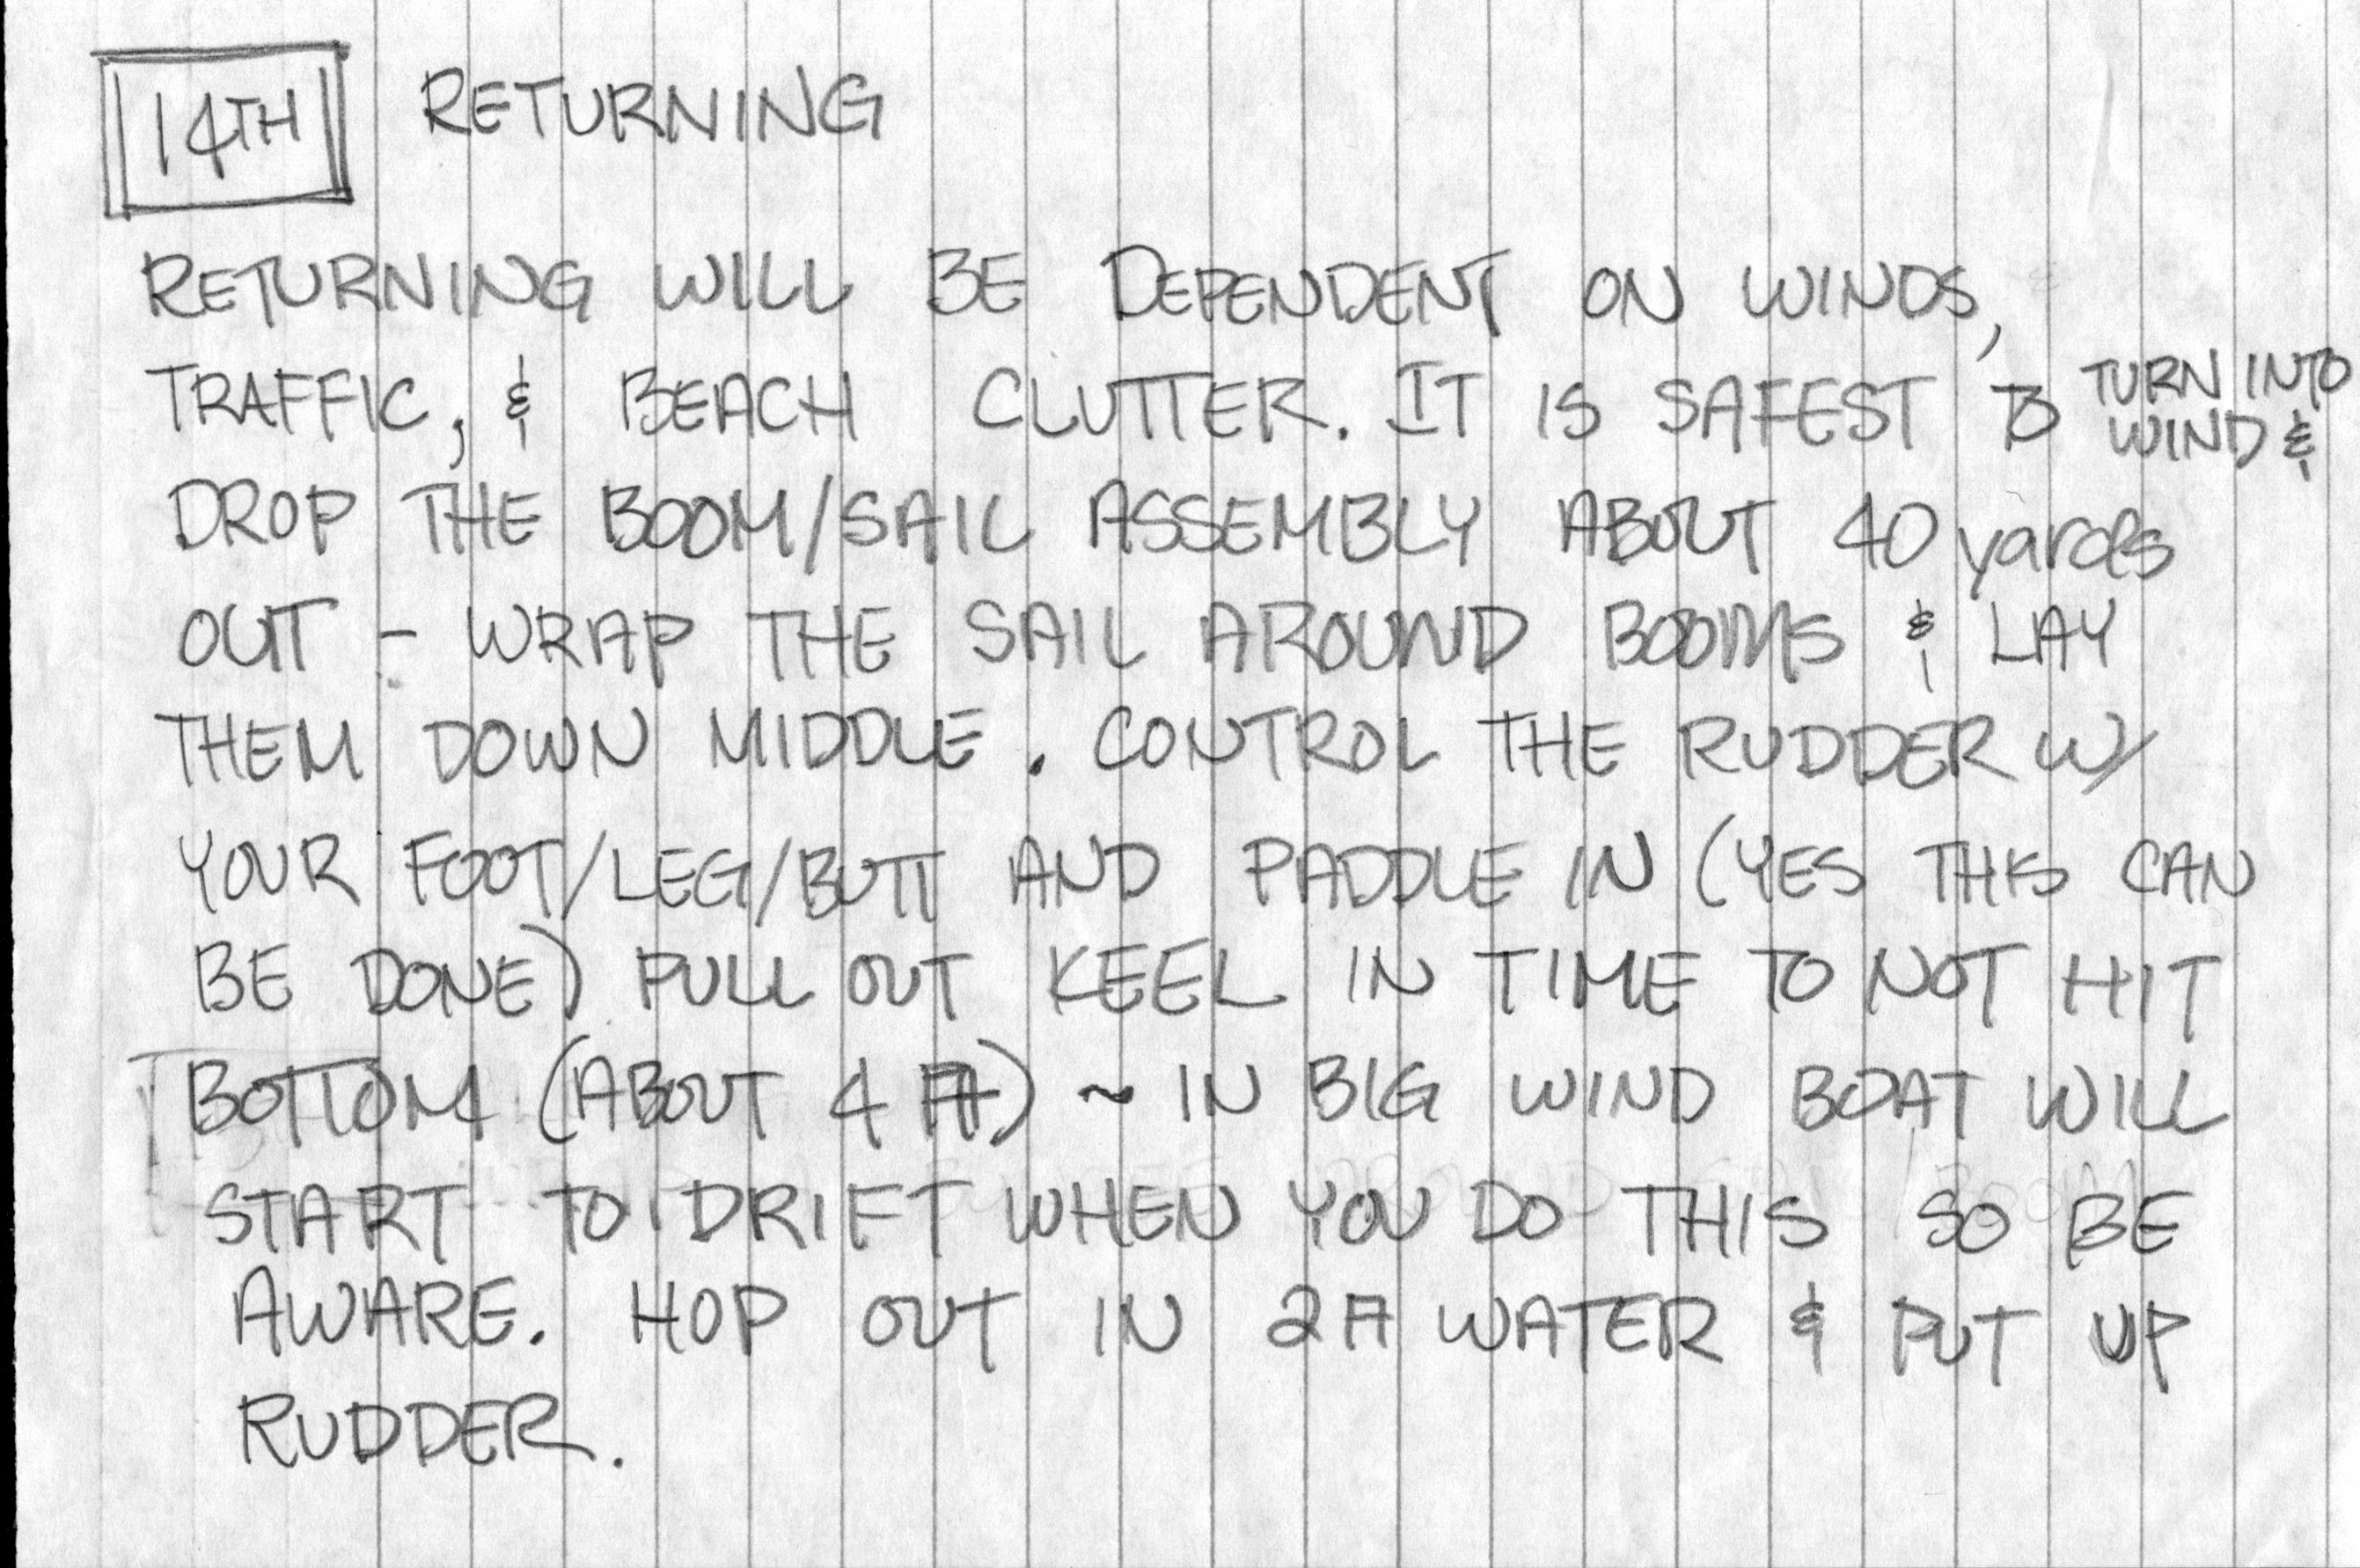 14TH RETURNING
RETURNING WILL BE DEPENDENT ON WINDS,
TRAFFIC, & BEACH CLUTTER. IT IS SAFEST TO TURN INTO WIND &
DROP THE BOOM/SAIL ASSEMBLY ABOUT 40 yards
OUT - WRAP THE SAIL AROUND BOOMS & LAY
THEM DOWN MIDDLE. CONTROL THE RUDDER W/
YOUR FOOT/LEG/BUTT AND PADDLE IN (YES THIS CAN
BE DONE) PULL OUT KEEL IN TIME TO NOT HIT
BOTTOM (ABOUT 4 FT) ~ IN BIG WIND BOAT WILL
START TO DRIFT WHEN YOU DO THIS SO BE
AWARE. HOP OUT IN 2 FT WATER & PUT UP
RUDDER.